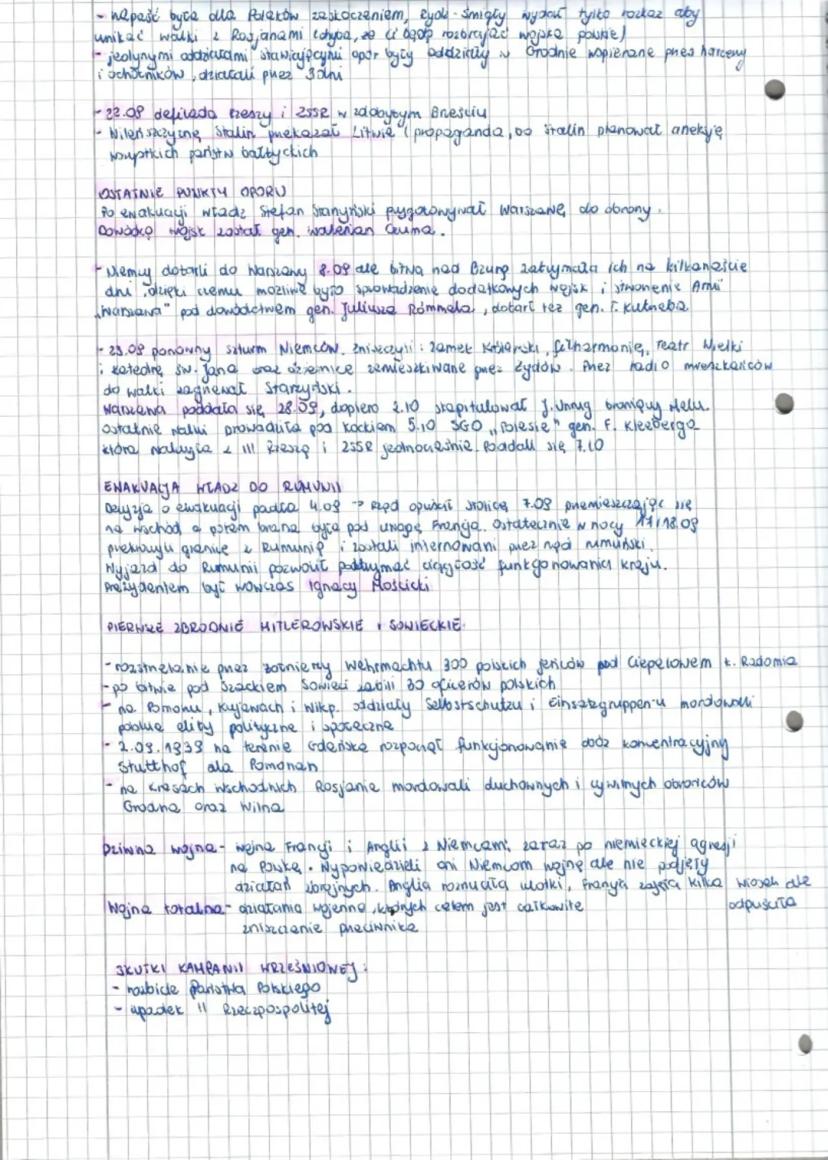 - napaść była dla Polaków zaskoczeniem, Rydz-Śmigły wydał tylko rozkaz aby
unikać walki z Rosjanami (chyba, że ci będą rozbrajać wojska polskie)
- jedynymi oddziałami stawiającymi opór były oddziały w Grodnie wspierane przez harcerzy
i ochotników, działali przez 3 dni
- 22.09 defilada Rzeszy i ZSSR w zdobytym Brześciu
- Wileńszczyznę Stalin przekazał Litwie (propaganda, bo Stalin planował aneksję
wszystkich państw bałtyckich
OSTATNIE PUNKTY OPORU
Po ewakuacji władz Stefan Starzyński przygotowywał Warszawę do obrony.
Dowódcą wojsk został gen. Walerian Czuma.
- Niemcy dotarli do Warszawy 8.09 ale bitwa nad Bzurą zatrzymała ich na kilkanaście
dni, dzięki czemu możliwe było sprowadzenie dodatkowych wojsk i stworzenie Armii
"Warszawa" pod dowództwem gen. Juliusza Rómmela, dotarł też gen. T. Kutrzeba
- 25.09 ponowny szturm Niemców. Zniszczyli: Zamek Królewski, filharmonię, Teatr Wielki
i katedrę św. Jana oraz dzielnice zamieszkiwane przez Żydów. Przez radio mieszkańców
do walki zagrzewał Starzyński.
Warszawa poddała się 28.09, dopiero 2.10 skapitulował J. Unrug broniący Helu.
Ostatnie walki prowadziła pod Kockiem 5.10 SGO "Polesie" gen. F. Kleeberga
która walczyła z III Rzeszą i ZSSR jednocześnie. Poddali się 7.10
EWAKUACJA WŁADZ DO RUMUNII
Decyzja o ewakuacji padła 4.09 → rząd opuścił stolicę 7.09 przemieszczając się
na wschód a potem brana była pod uwagę Francja. Ostatecznie w nocy 17/18.09
przekroczyli granicę z Rumunią i zostali internowani przez rząd rumuński.
Wyjazd do Rumunii pozwolił podtrzymać ciągłość funkcjonowania kraju.
Prezydentem był wówczas Ignacy Mościcki
PIERWSZE ZBRODNIE HITLEROWSKIE I SOWIECKIE
- rozstrzelanie przez żołnierzy Wehrmachtu 300 polskich jeńców pod Ciepielowem k. Radomia
- po bitwie pod Szackiem Sowieci zabili 30 oficerów polskich
- na Pomorzu, Kujawach i Wlkp. oddziały Selbstschutzu i Einsatzgruppen-u mordowali
polskie elity polityczne i społeczne
- 2.09.1939 na terenie Gdańska rozpoczął funkcjonowanie obóz koncentracyjny
Stutthof dla Pomorzan
- na Kresach Wschodnich Rosjanie mordowali duchownych i cywilnych obrońców
Grodna oraz Wilna
Dziwna wojna - wojna Francji i Anglii z Niemcami, zaraz po niemieckiej agresji
na Polskę. Wypowiedzieli oni Niemcom wojnę ale nie podjęły
działań zbrojnych. Anglia rozrzucała ulotki, Francja zajęła kilka wiosek ale
odpuściła
Wojna totalna - działania wojenne, których celem jest całkowite
zniszczenie przeciwnika
SKUTKI KAMPANII WRZEŚNIOWEJ:
- rozbicie Państwa Polskiego
- upadek II Rzeczpospolitej